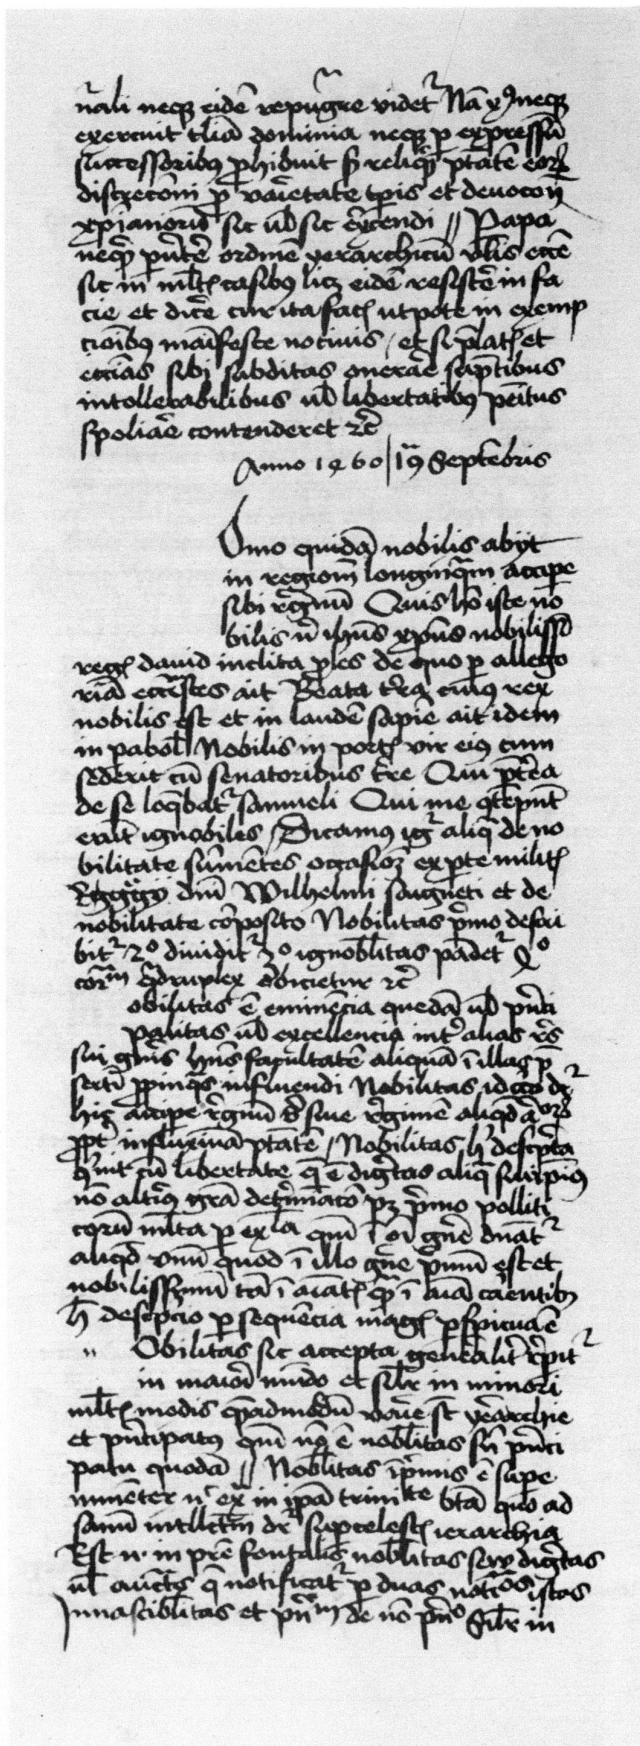 n̄ali neqȝ eidē repug̃re videt᷑ Nā xp̃s neqȝ
exercuit t̄lia dominia neqȝ p expressū
successoribus ꝓhibuit sʒ reliq̄t ptātē eoꝝ
discrecōni ꝓ vaĩetate tp̄is et deuocōn̄
xp̄ianoꝝ sic ūl sic ex̃cendi // Papa
ordinē yerarchicū ecc̄e
sic in ml̄tꝭ casibus licȝ eidē resistẽ in fa
cie et dicẽ cur ita facꝭ utpote in exemp
cioībus maīfeste nociuis / et si p̄latꝭ et
ecc̄ias sibi subditas onerãe
intollerabilibus ūl libertatibꝰ pēitus
spoliãe contenderet ⁊c̄
Anno 1460 Septēbris
Omo quidā nobilis abijt
in regiom̄ longinq̃m accipe
sibi r̃gnū Quis hō iste no
bilis n̄ ihūs xp̄us nobilissī
regꝭ dauid inclita ꝓles de quo p allego
riā eccl̃stes ait Beata t̃ra cuius rex
nobilis est et in laudē sapiē ait idem
in pabol̄ Nobilis in portꝭ vir eiꝰ cum
sederit cū senatoribus t̃re Qui p̃t̃ea
de se loq̄bat᷑ samueli Qui me ꝯtēpnūt
erūt ignobiles / Dicamꝰ ig᷑ aliq̃ de no
bilitate sumētes occasioȝ ex pte militꝭ
dnī Wilhelmi et de
nobilitate cōposito Nobilitas p̃mo descri
bit᷑ 2º diuidit᷑ 3º ignobl̄itas pādet᷑ 4º
q̃druplex obicietur ⁊c̄
obilitas ē eminēcia quedā ūl p̃nci
palitas ūl excellencia int᷑ alias r̃s
sui gn̄is hn̄s facultatē aliquā ī illas p̃
sertī ꝓpinq̃s influendi Nobilitas
hic accipe r̃gnū siue r̃gimē aliqd̄
ꝓpt᷑ influxiuā ptātē / Nobilitas h᷑ descp̃ta
cū libertate q̄ ē dig̃tas aliq̃
nō altiꝰ gr̃a pȝ p̃mo polliti
coꝝ ml̄ta p ex̄la qm̄ ī oī gn̄e dnāt᷑
aliqd̄ vnū quod ī illo gn̄e p̃mū est et
nobilissimū tā ī aīatꝭ q̃ ī aīā carētibꝰ
h̄ descp̃cio p sequēcia magꝭ pspicua ē
Obilitas sic accepta genēalit᷑ r̃pit᷑
in maiori mūdo et sil̄r in minori
ml̄tꝭ modis q̄admodū vaĩe st̄ yerarchie
et p̃ncipatꝰ qm̄ nō ē nobl̄itas sn̄ p̃nci
patu quodā // Nobl̄itas īp̃mis ē supe
minēter in ip̃a trinitᵗᵉ btā quo ad
sanū intll̄ctm̄ dr̄ supcelestꝭ ierarchia
Est n̄ in pr̄e fontalis nobl̄itas seu dig̃tas
ūl q̄ notificat᷑ p duas istas
Innascibl̄itas et de nō Sil̄r in